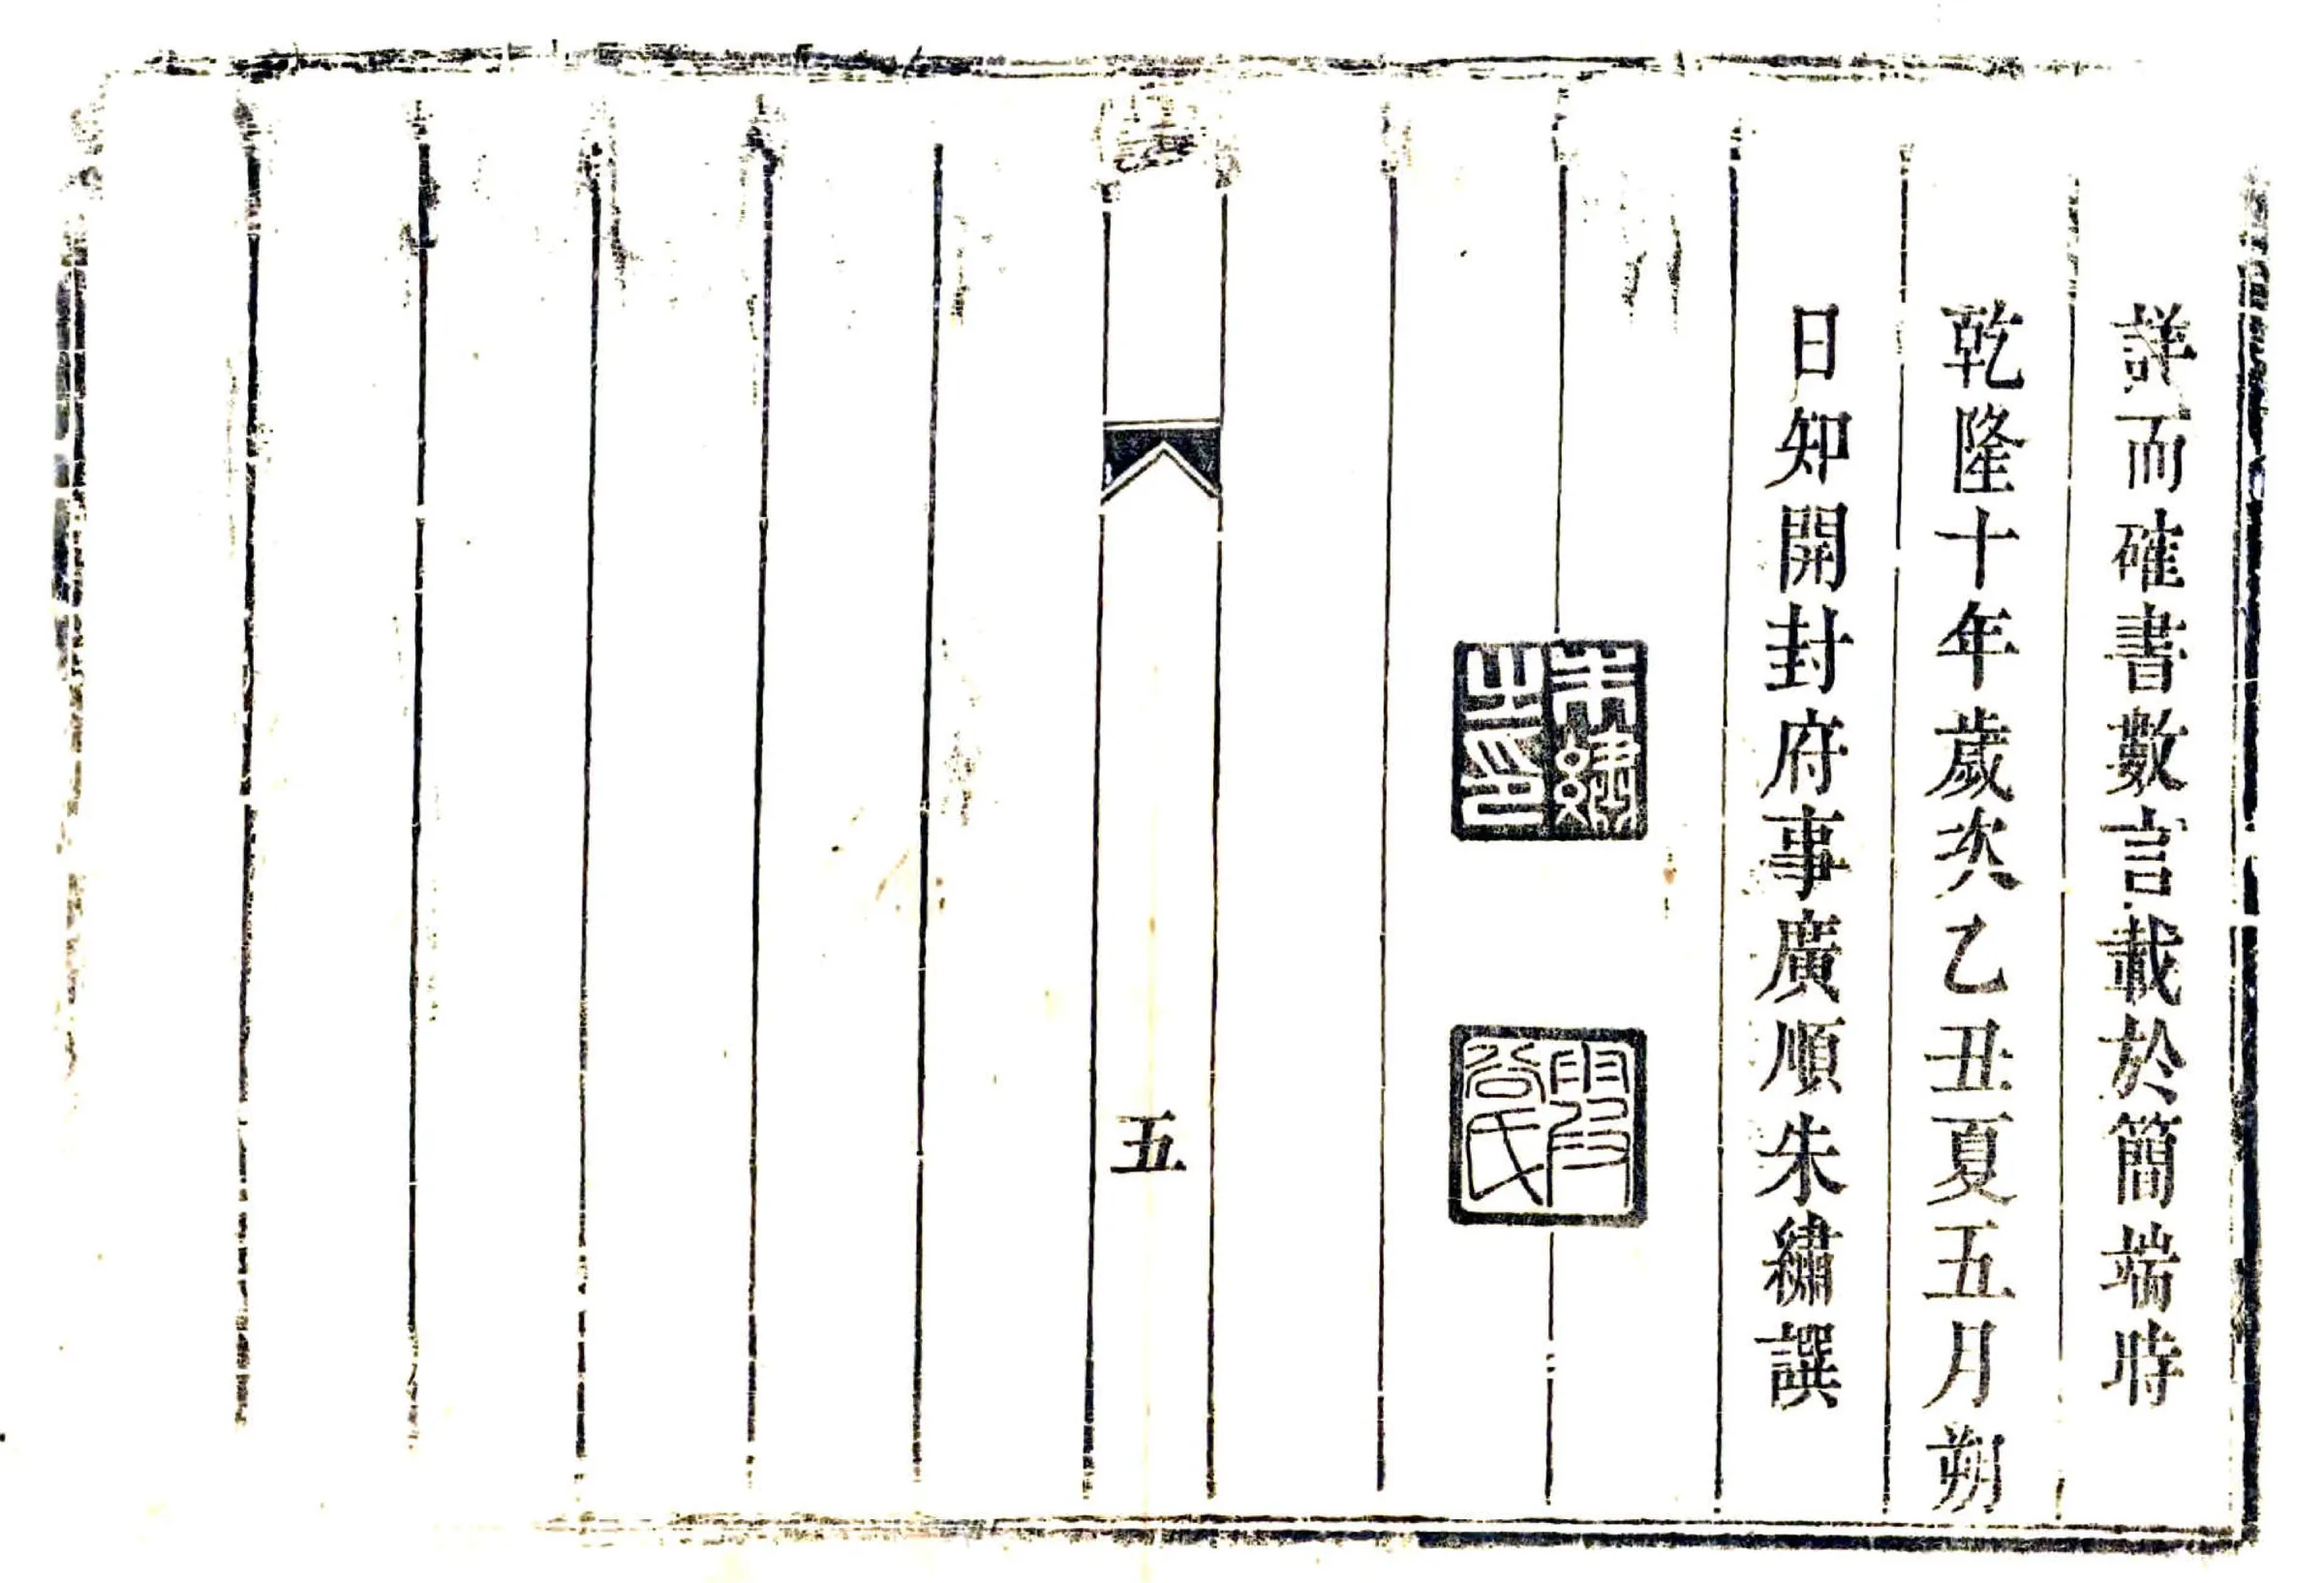 詳而確書數言載於簡端時
乾隆十年歲次乙丑夏五月朔
日知開封府事廣順朱繡譔
朱繡之印
五